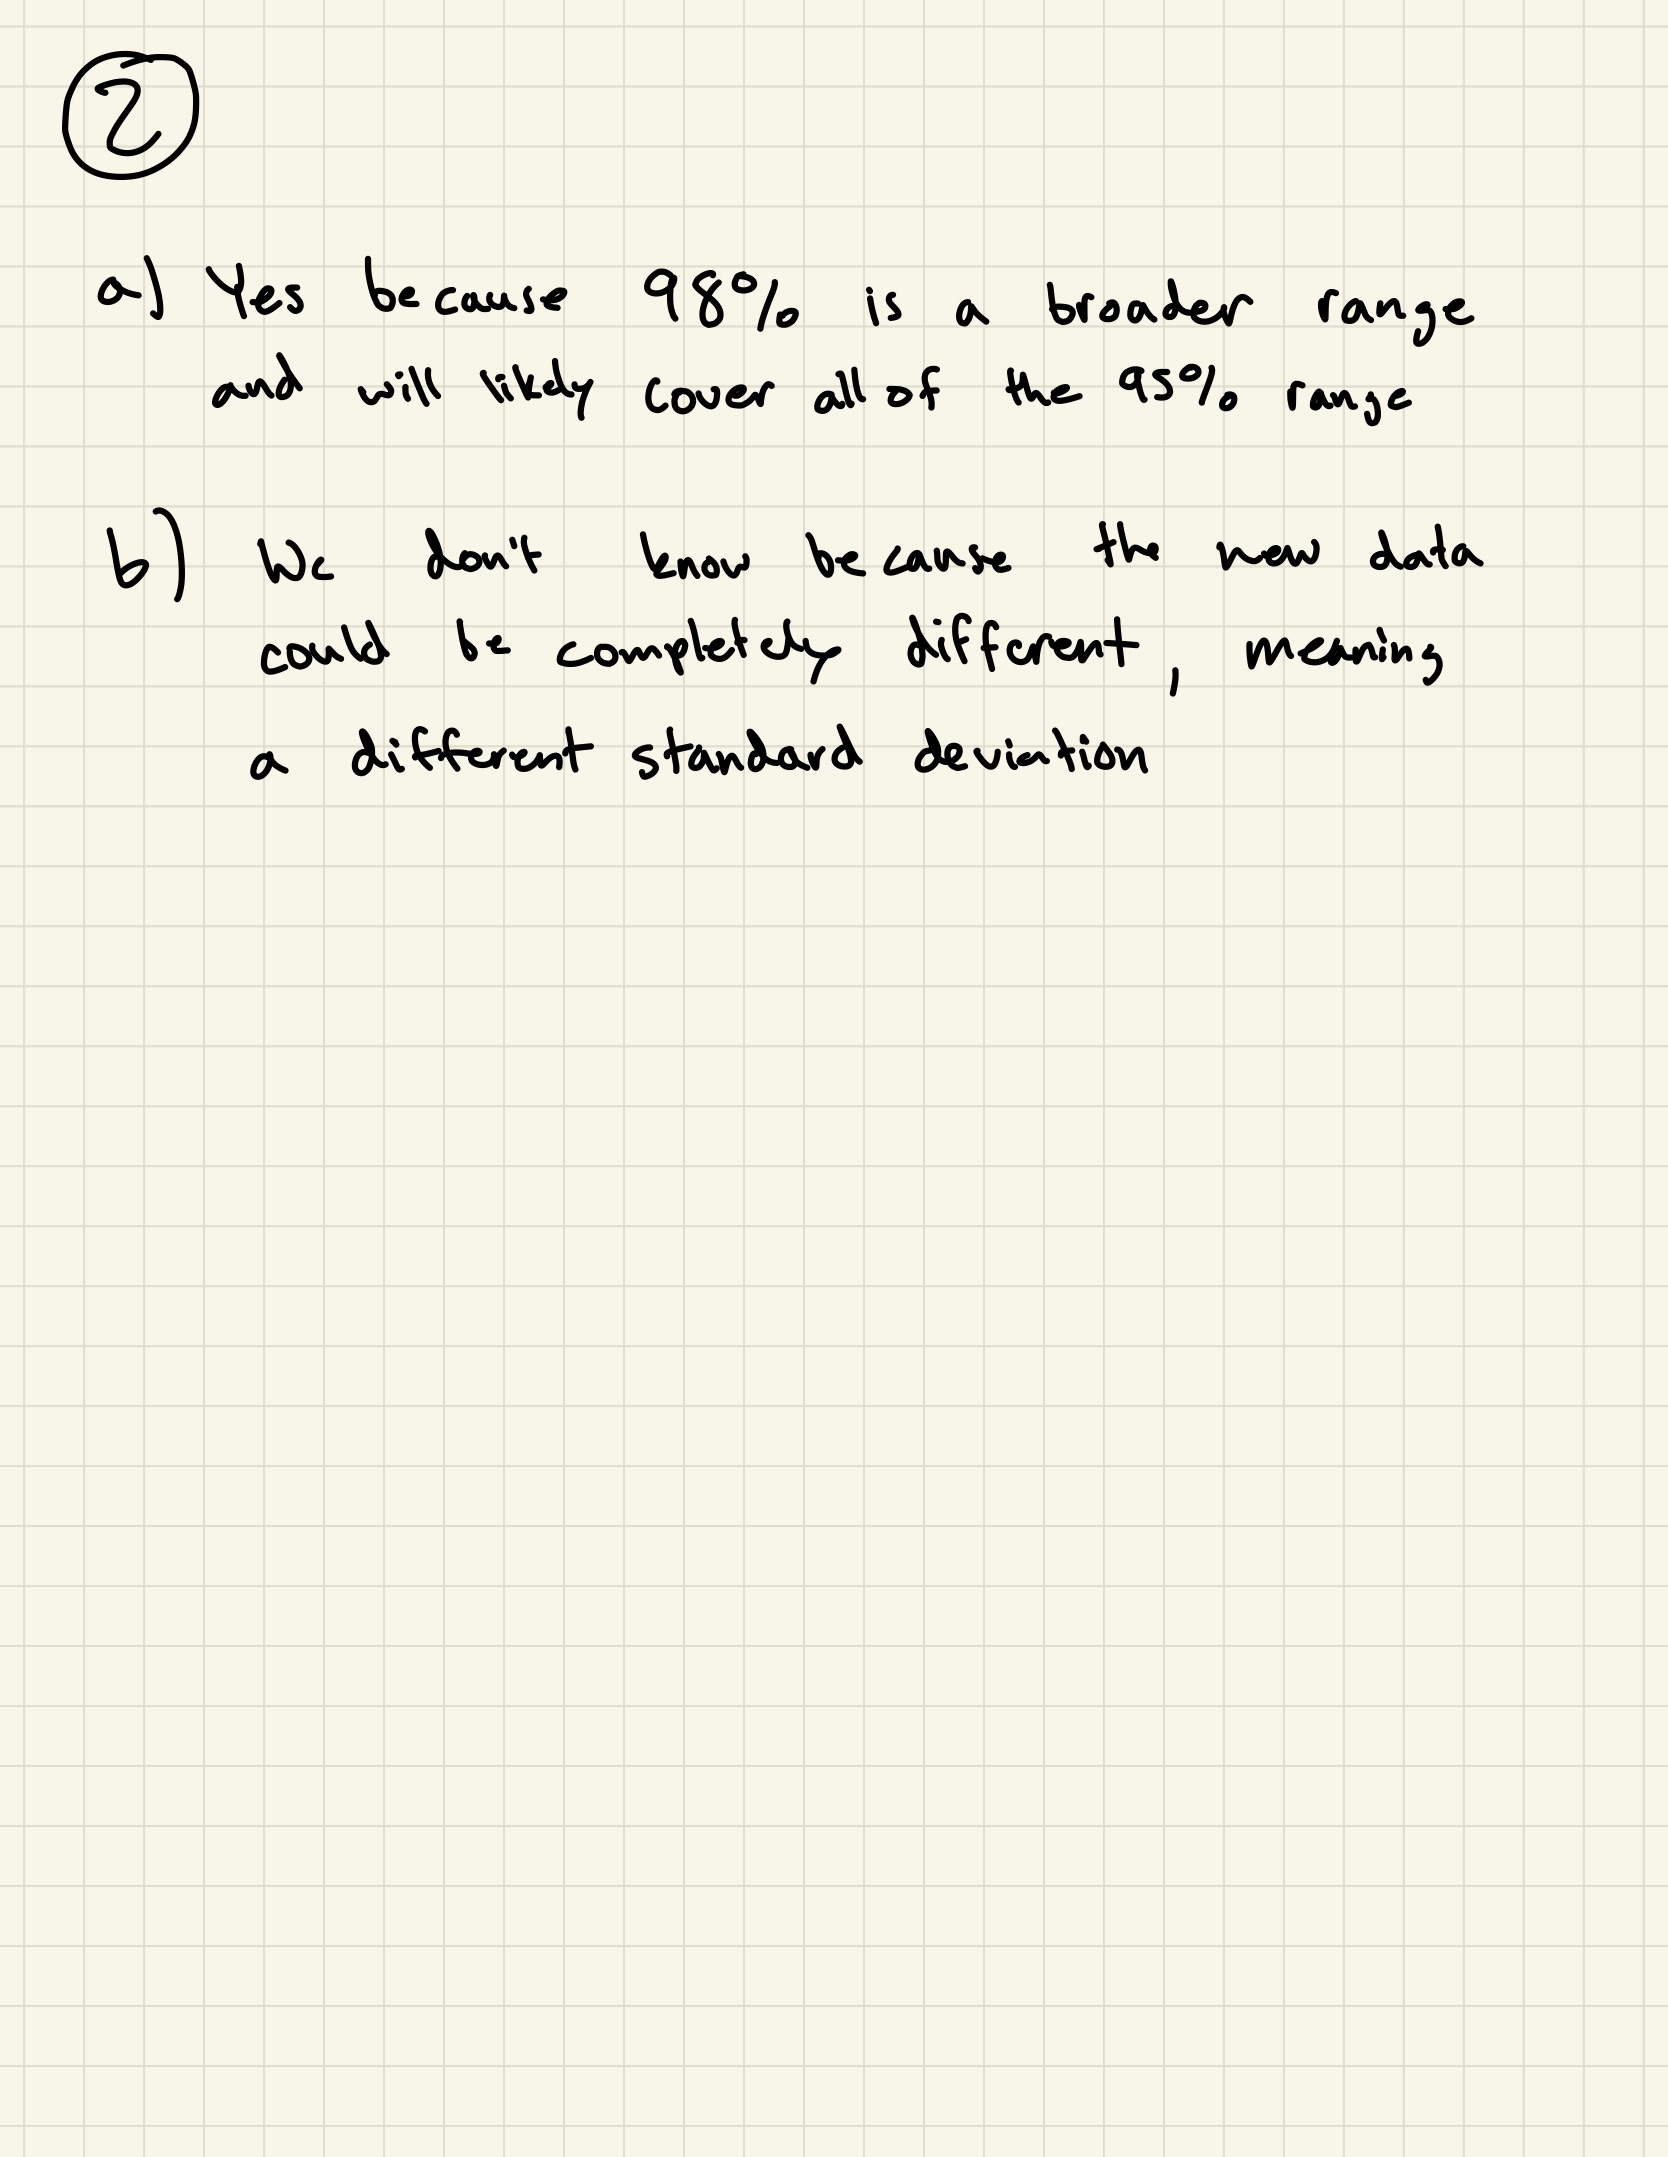 2
a) Yes because 98% is a broader range
and will likely cover all of the 95% range
b) We don't know because the new data
could be completely different, meaning
a different standard deviation